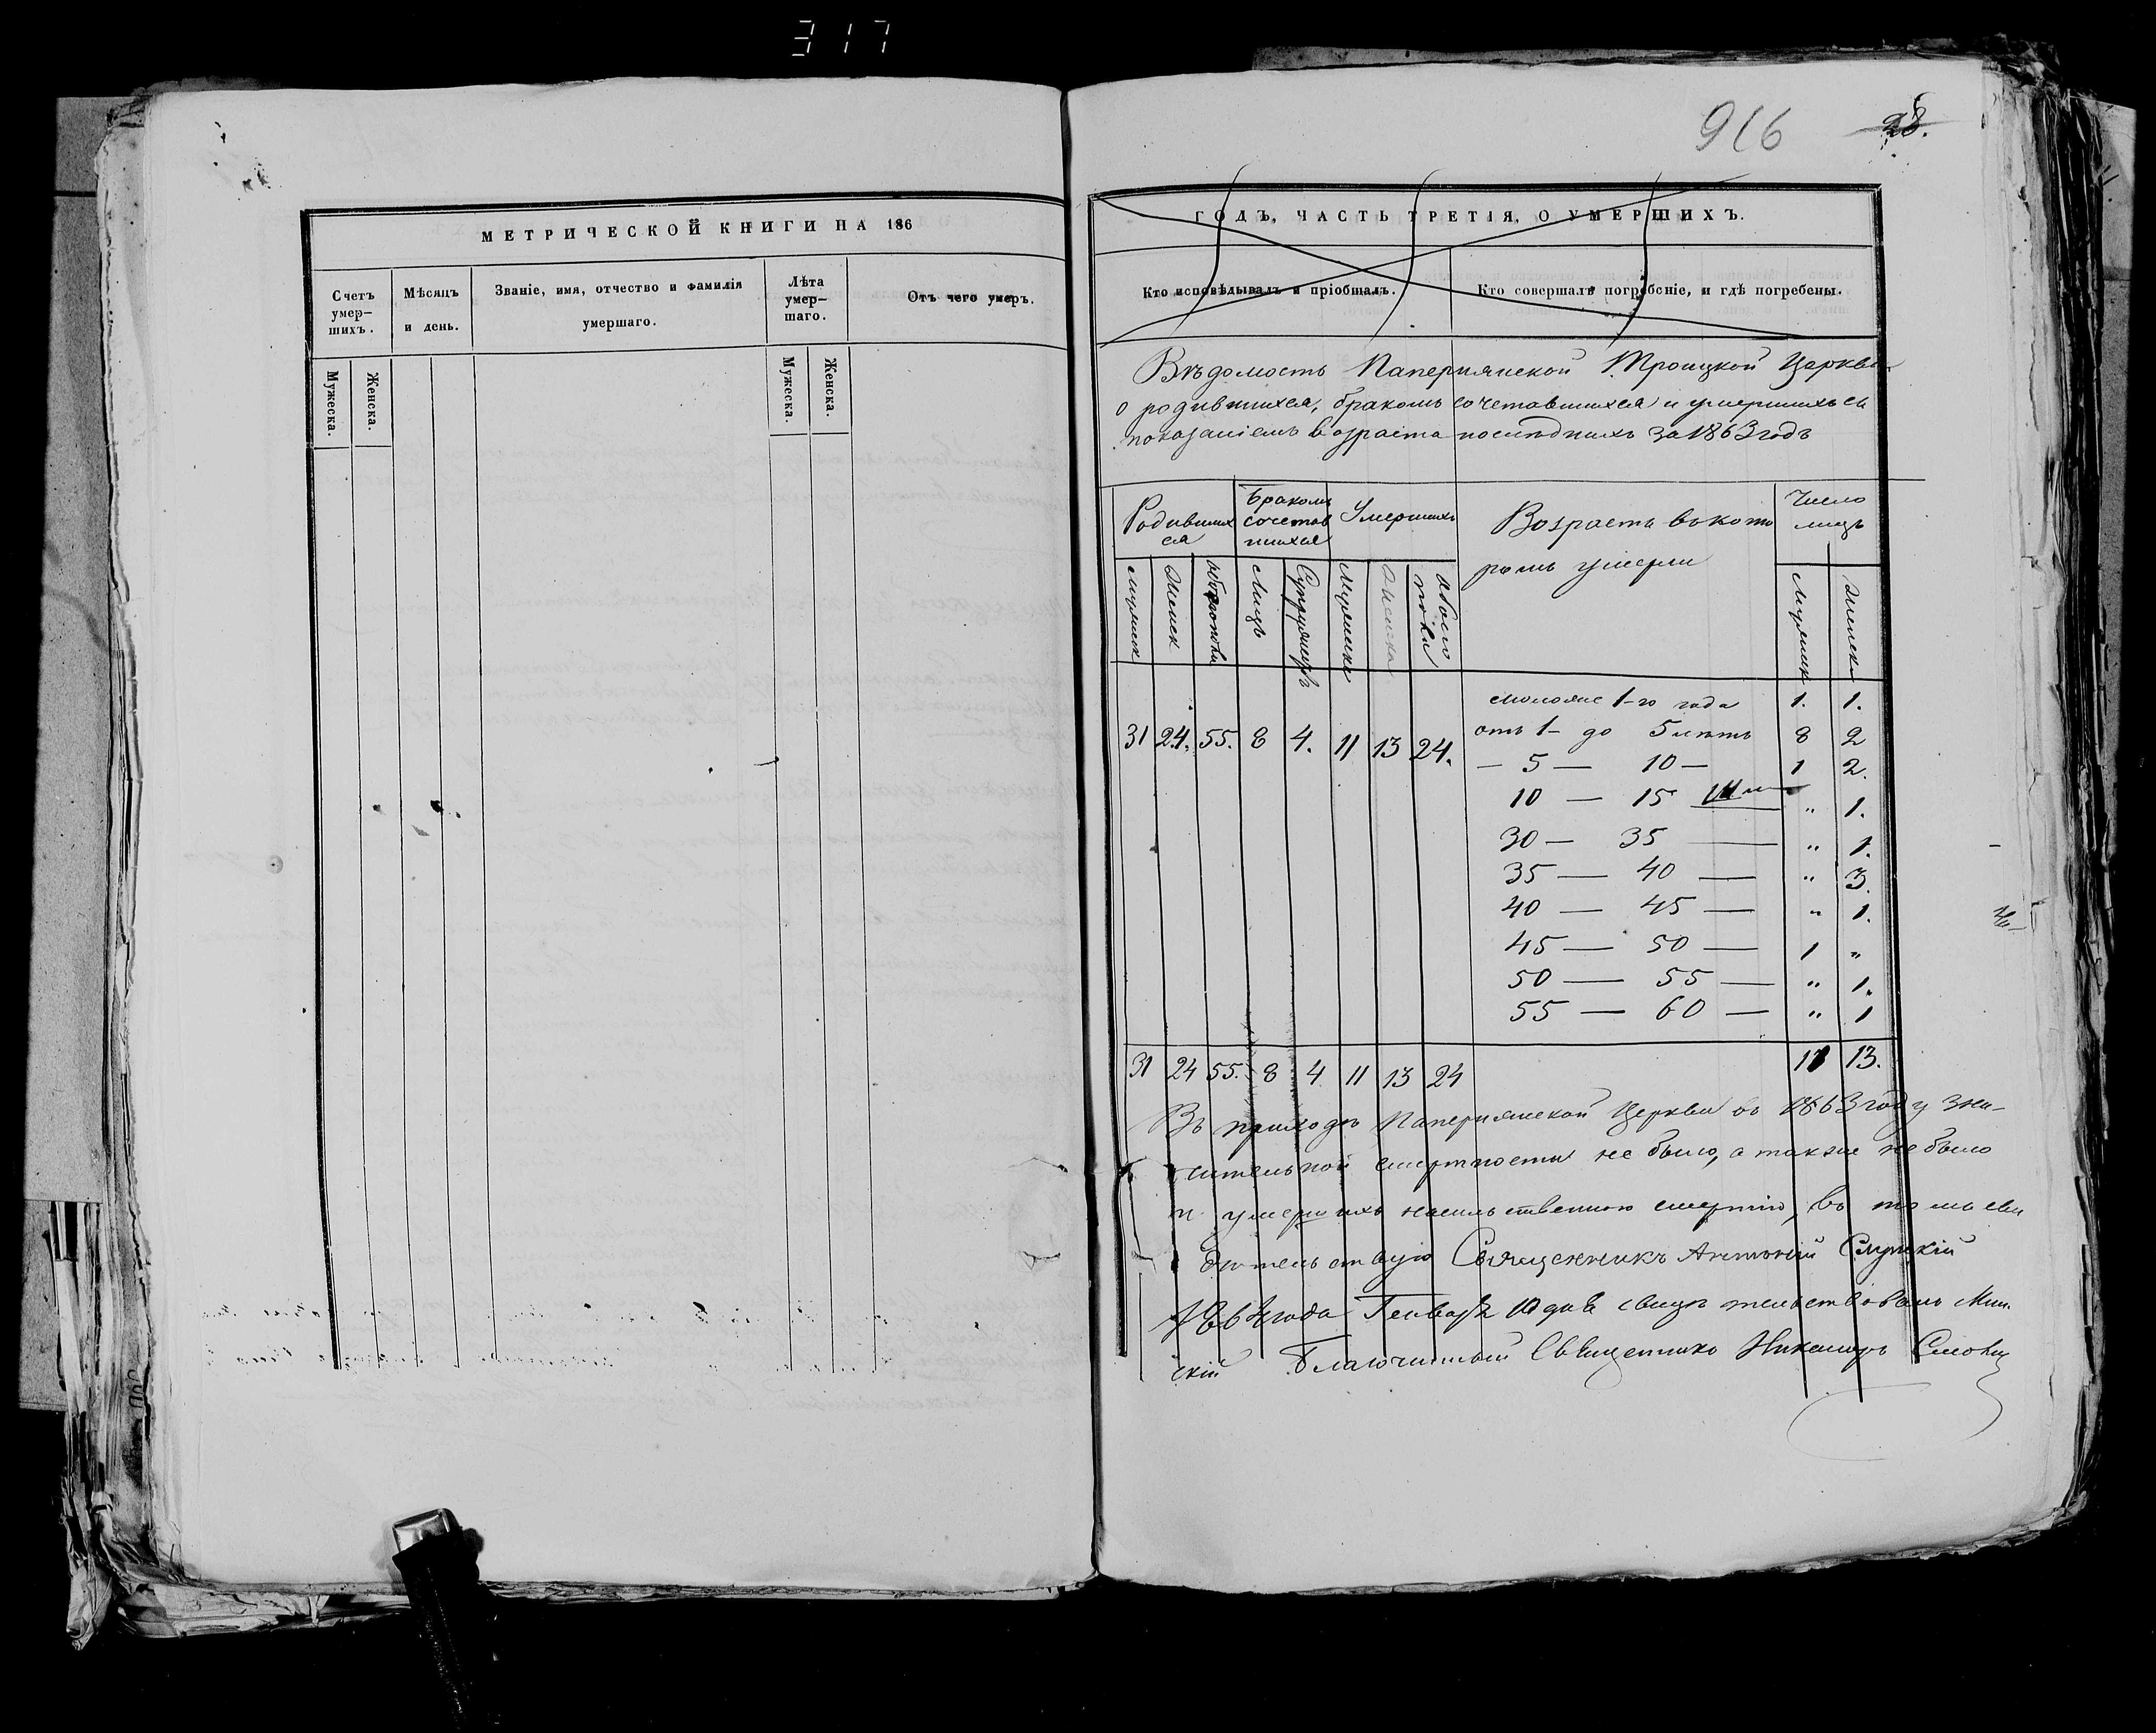 317
916
28.
МЕТРИЧЕСКОЙ КНИГИ НА 186
Счетъ умер-шихъ.
Мѣсяцъ и день.
Званіе, имя, отчество и фамилія умершаго.
Лѣта умер-шаго.
Отъ чего умеръ.
Мужеска.
Женска.
Мужеска.
Женска.
ГОДЪ, ЧАСТЬ ТРЕТІЯ, О УМЕРШИХЪ.
Кто исповѣдывалъ и пріобщалъ.
Кто совершалъ погребеніе, и гдѣ погребены.
Вѣдомость Папернянской Троицкой Церкви
о родившихся, бракомъ сочетавшихся и умершихъ съ
показаніемъ возраста послѣднихъ за 1863 годъ
Родивших ся
Бракомъ сочетав шихся
Умершихъ
Возрастъ въ кото ромъ умерли
Число лицъ
Мужеск
Женск
обоего пола
Лицъ
Супружествъ
Мужеска
Женска
обоего пола
Мужеск
Женск
моложе 1-го года 1. 1.
31 24. 55. 8 4. 11 13 24.
отъ 1 — до 5 лѣтъ 8 2
— 5 — 10 — 1 2.
10 — 15 „ 1.
30 — 35 — „ 1.
35 — 40 — „ 3.
40 — 45 — „ 1.
45 — 50 — 1 „
50 — 55 — „ 1.
55 — 60 — „ 1
31 24 55. 8 4 11 13 24 11 13.
Въ приходѣ Папернянской Церкви въ 1863 году зна-
чительной смертности не было, а также не было
и умершихъ насильственною смертію, въ томъ сви
дѣтельствую Священникъ Антоній Слупскій
1864 года Генваря 10 дня свидѣтельствовалъ Мин.
скій Благочинный Священникъ Никаноръ